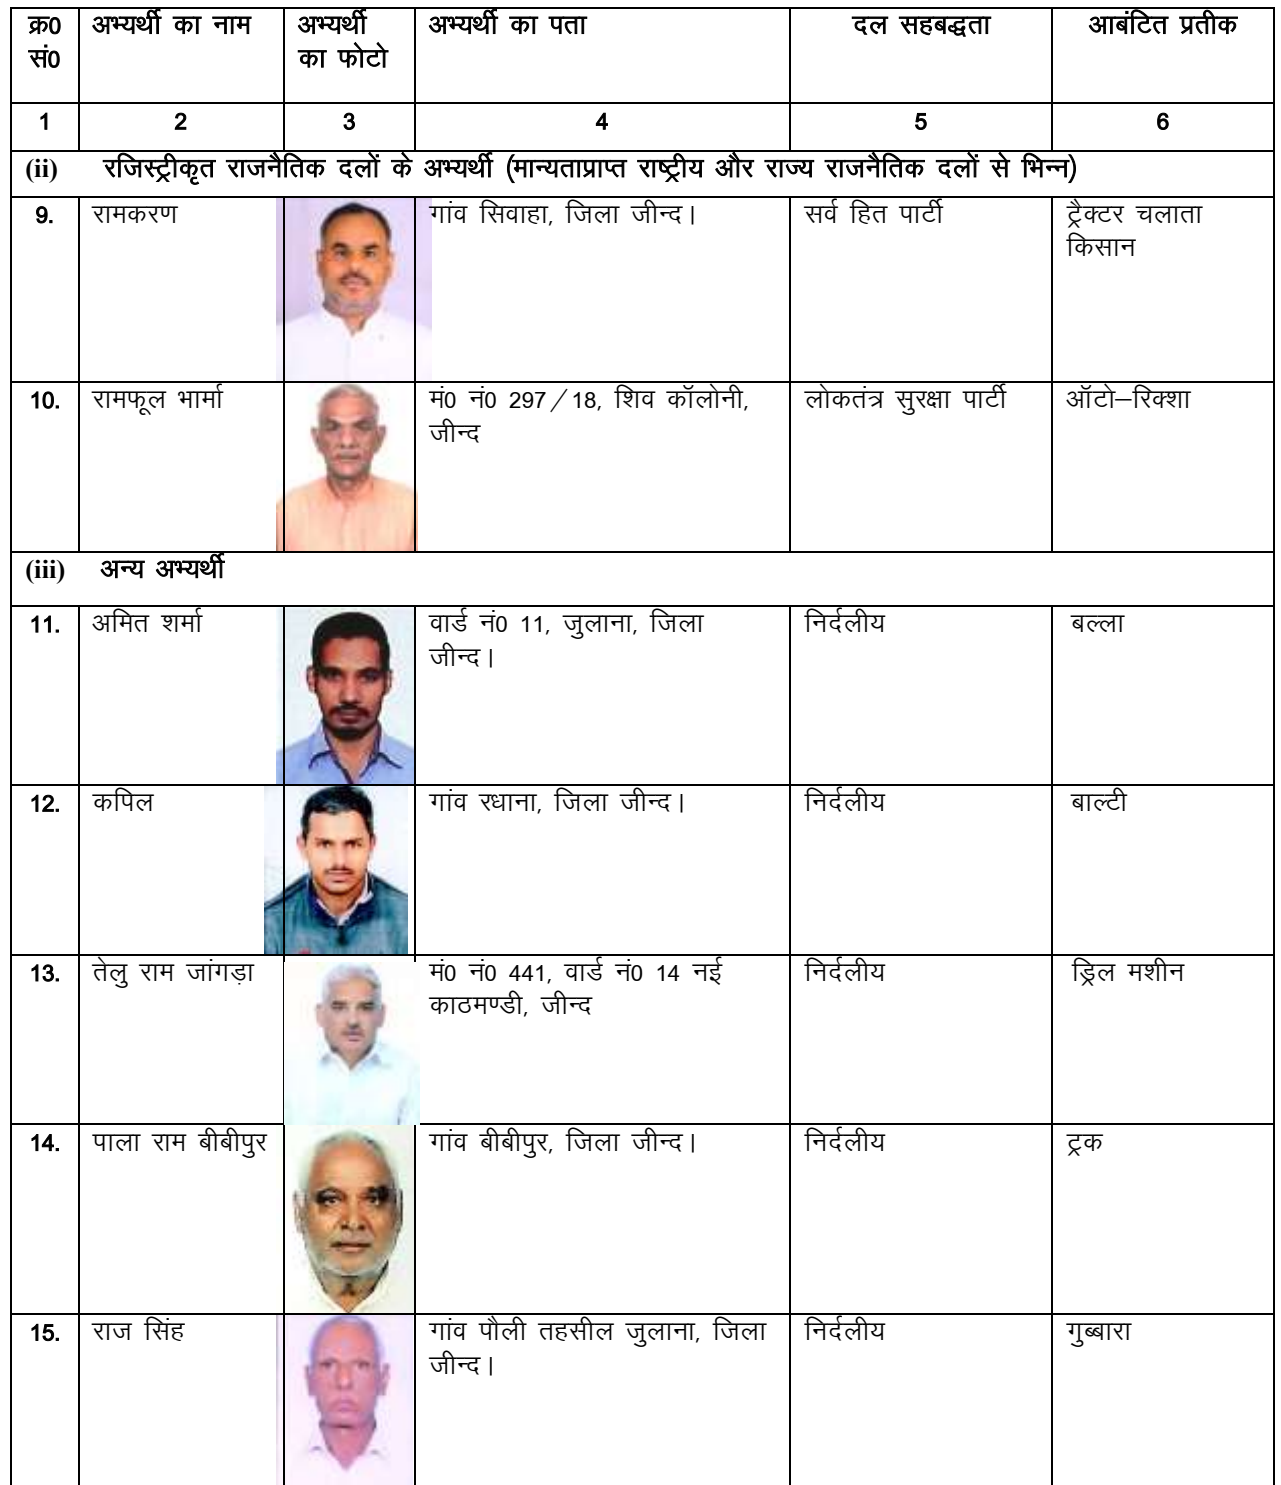 क्र0 सं0 अभ्यर्थी का नाम अभ्यर्थी का फोटो अभ्यर्थी का पता दल सहबद्धता आबंटित प्रतीक
1 2 3 4 5 6
(ii) रजिस्ट्रीकृत राजनैतिक दलों के अभ्यर्थी (मान्यताप्राप्त राष्ट्रीय और राज्य राजनैतिक दलों से भिन्न)
9. रामकरण गांव सिवाहा, जिला जीन्द। सर्व हित पार्टी ट्रैक्टर चलाता
किसान
10. रामफूल भार्मा मं0 नं0 297/18, शिव कॉलोनी, लोकतंत्र सुरक्षा पार्टी ऑटो–रिक्शा
जीन्द
(iii) अन्य अभ्यर्थी
11. अमित शर्मा वार्ड नं0 11, जुलाना, जिला निर्दलीय बल्ला
जीन्द।
12. कपिल गांव रधाना, जिला जीन्द। निर्दलीय बाल्टी
13. तेलु राम जांगड़ा मं0 नं0 441, वार्ड नं0 14 नई निर्दलीय ड्रिल मशीन
काठमण्डी, जीन्द
14. पाला राम बीबीपुर गांव बीबीपुर, जिला जीन्द। निर्दलीय ट्रक
15. राज सिंह गांव पौली तहसील जुलाना, जिला निर्दलीय गुब्बारा
जीन्द।